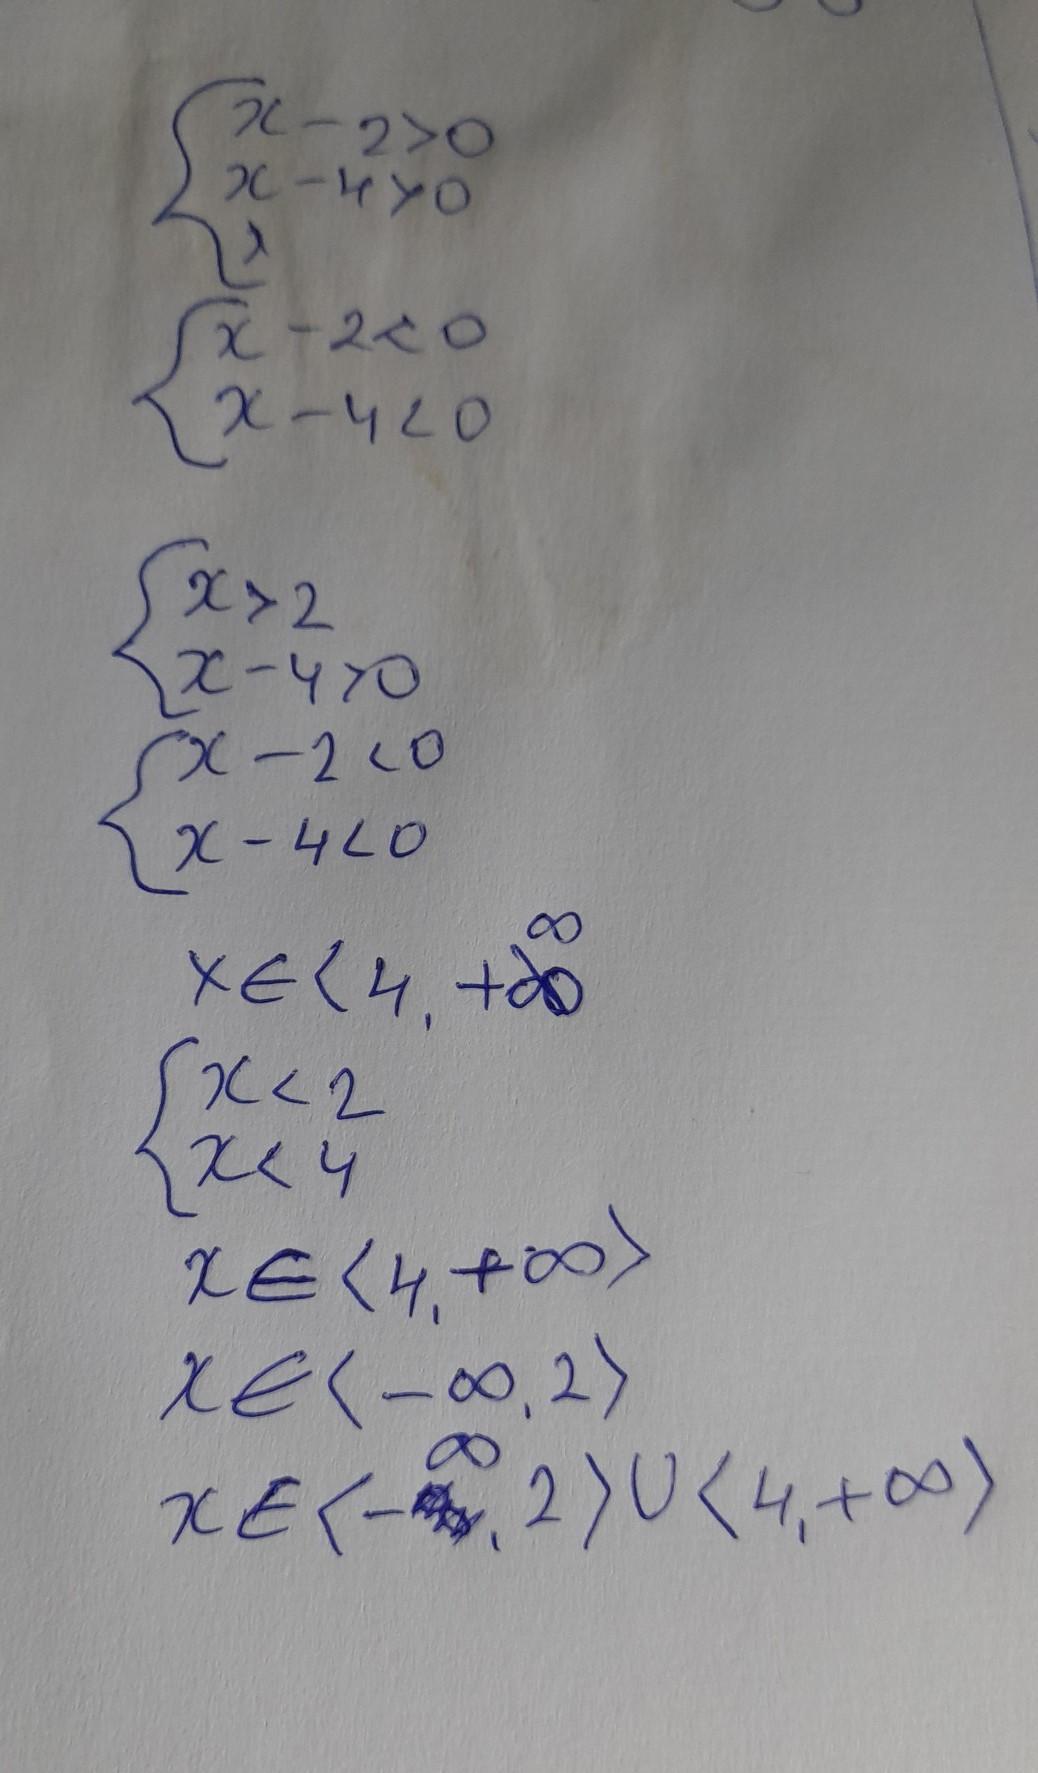 x - 2 > 0
x - 4 > 0
x
x - 2 < 0
x - 4 < 0
x > 2
x - 4 > 0
x - 2 < 0
x - 4 < 0
x ∈ ⟨ 4, + ∞
x < 2
x < 4
x ∈ ⟨ 4, + ∞ ⟩
x ∈ ⟨ - ∞, 2 ⟩
x ∈ ⟨ - ∞, 2 ⟩ ∪ ⟨ 4, + ∞ ⟩